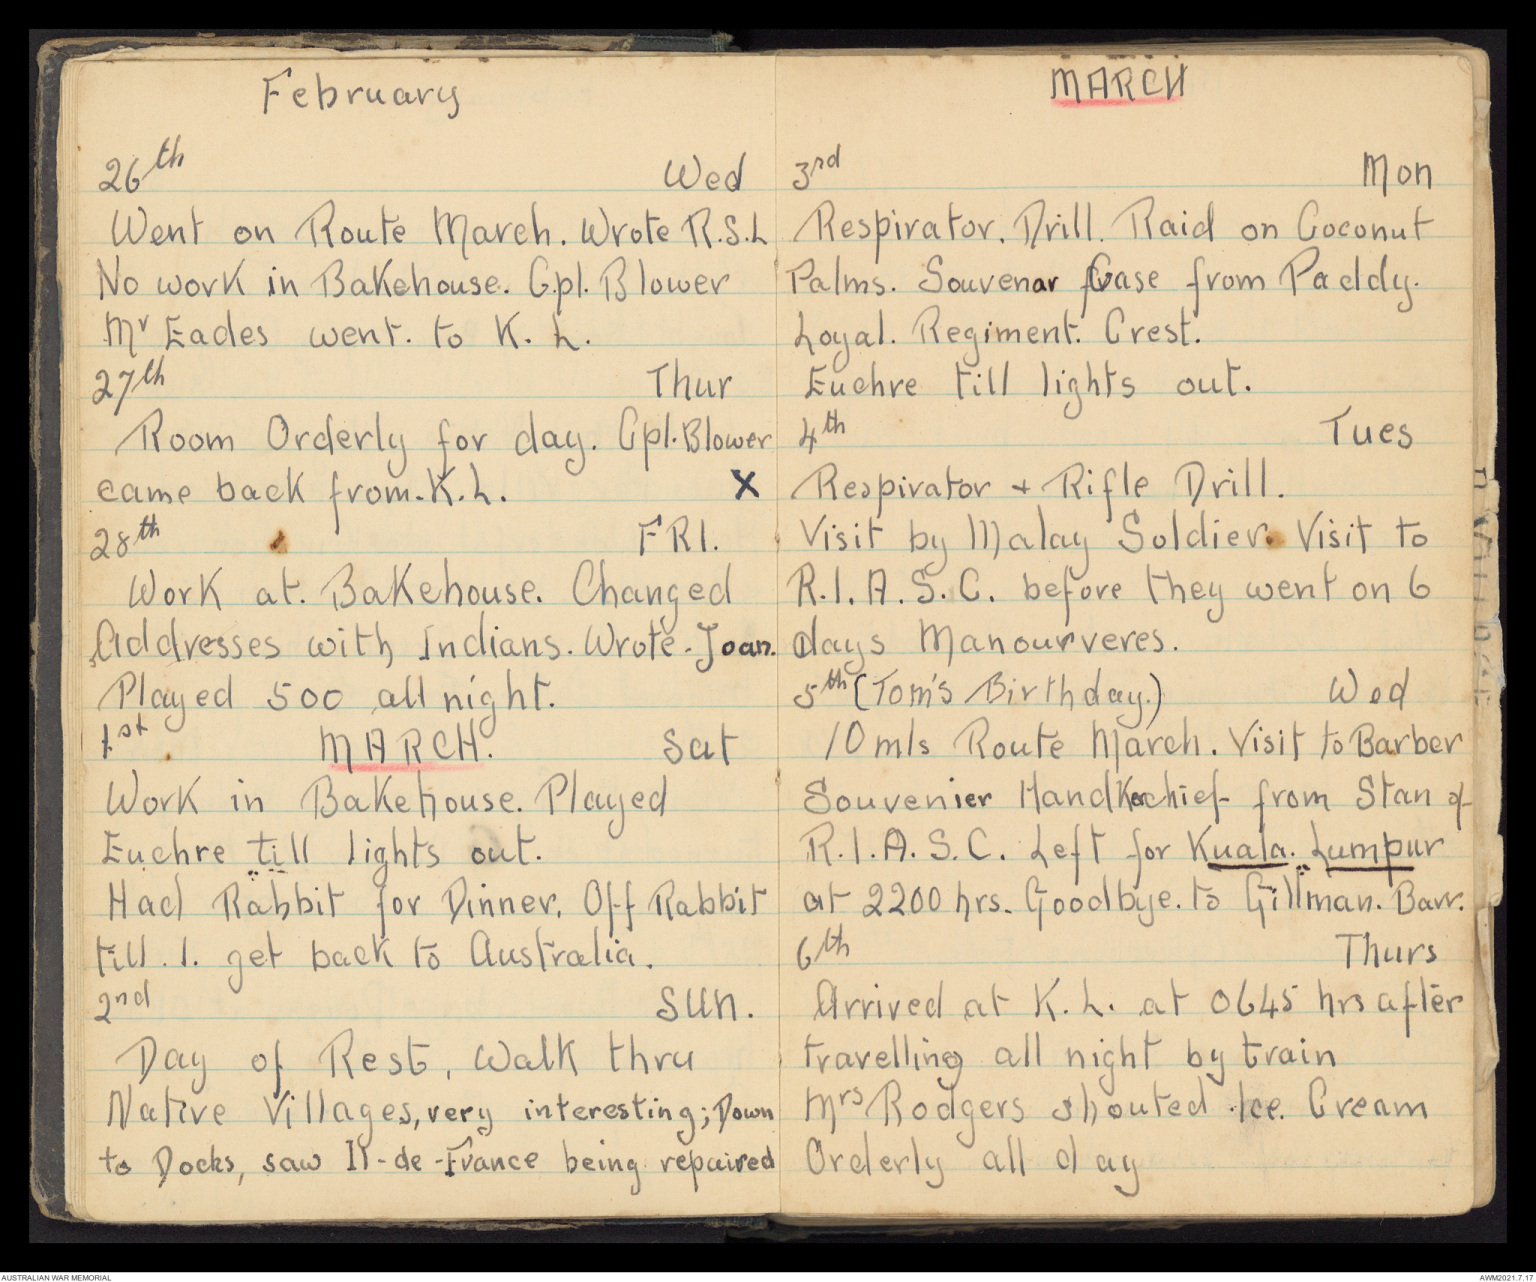 February
26th Wed
Went on Route March. Wrote R.S.L
No work in Bakehouse. Cpl. Blower
Mr Eades went. to K. L.
27th Thur
Room Orderly for day. Cpl. Blower
came back from. K. L. X
28th FRI.
Work at. Bakehouse. Changed
Addresses with Indians. Wrote - Joan.
Played 500 all night.
1st MARCH. Sat
Work in Bakehouse. Played
Euchre till lights out.
Had Rabbit for Dinner, Off Rabbit
till. I. get back to Australia.
2nd SUN.
Day of Rest, Walk thru
Native Villages, very interesting; Down
to Docks, saw Il-de-France being repaired
MARCH
3rd Mon
Respirator. Drill. Raid on Coconut
Palms. Souvenar Case from Paddy.
Loyal. Regiment. Crest.
Euchre till lights out.
4th Tues
Respirator + Rifle Drill.
Visit by Malay Soldier. Visit to
R.I.A.S.C. before they went on 6
days Manourveres.
5th (Tom's Birthday.) Wed
10 mls Route March. Visit to Barber
Souvenier Handkechief from Stan of
R.I.A.S.C. Left for Kuala. Lumpur
at 2200 hrs. Goodbye. to Gillman. Barr.
6th Thurs
Arrived at K. L. at 0645 hrs after
travelling all night by train
Mrs Rodgers shouted Ice. Cream
Orderly all day
AUSTRALIAN WAR MEMORIAL
AWM2021.7.17